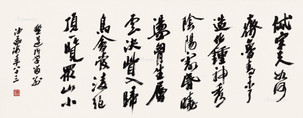 岱宗夫如何
齊魯青未了
造化鍾神秀
陰陽割昏曉
盪胸生層
雲決眥入歸
鳥會當凌絕
頂一覽眾山小